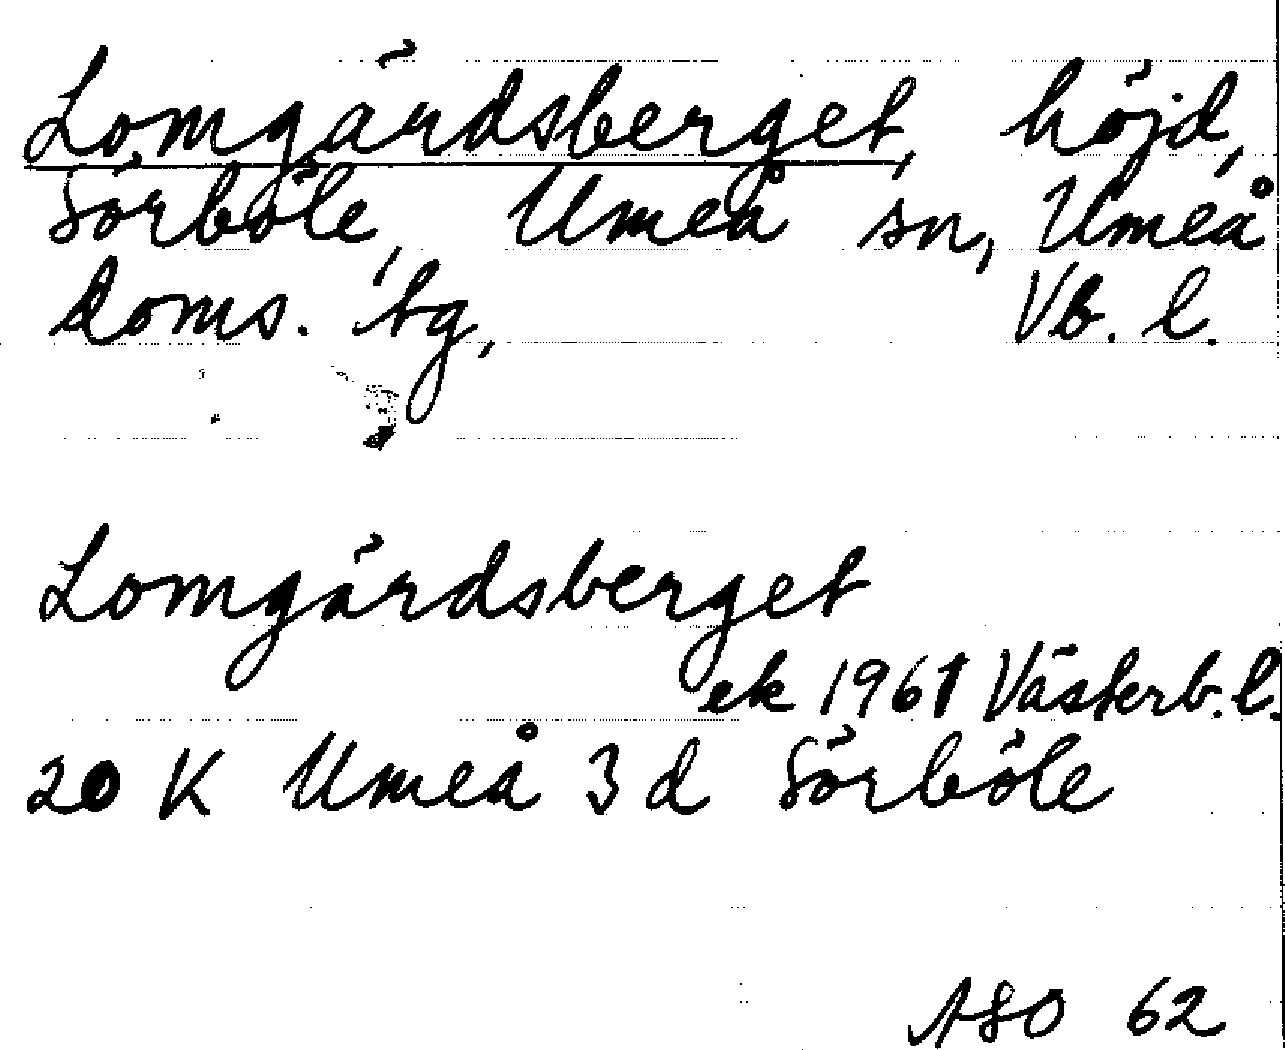 Lomgärdsberget, höjd,
Sörböle, Umeå sn, Umeå
doms. tg, Vb. l.
Lomgärdsberget
ek 1961 Västerb. l.
20 K Umeå 3 d Sörböle
ASO 62